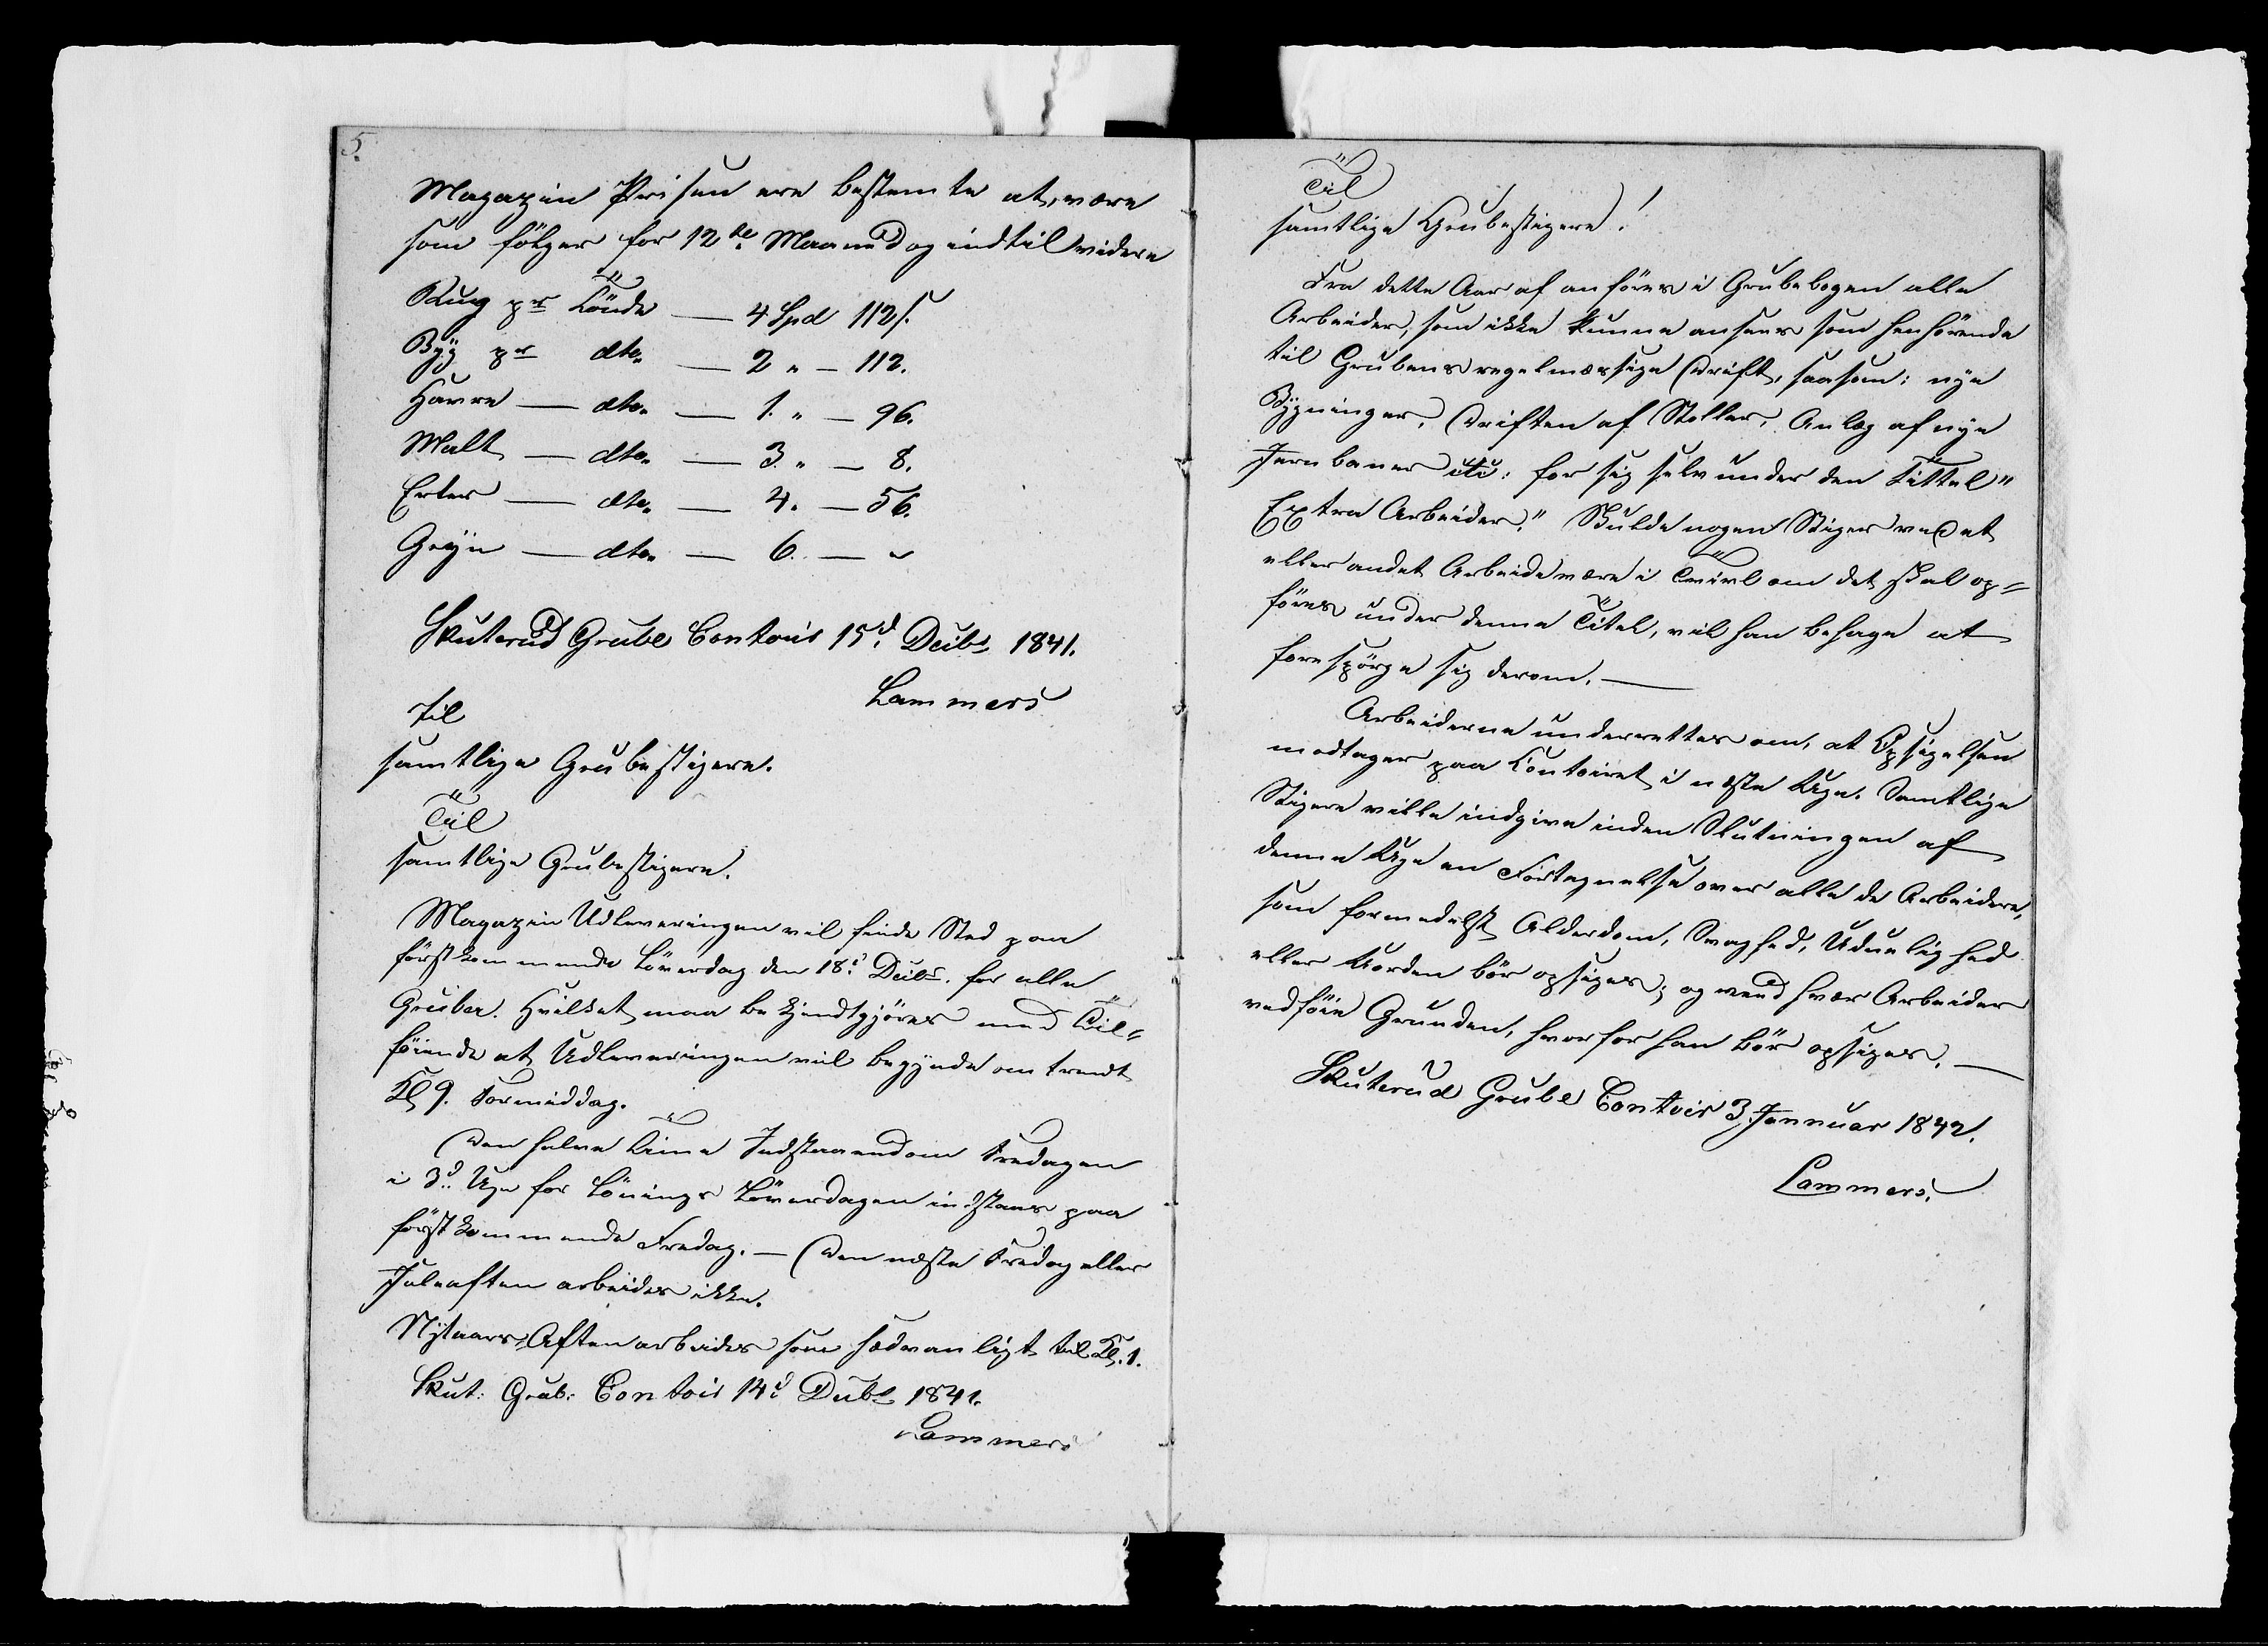 5.
Magazin Prisen ere bestemte at være
som fölger for 12te Maaned og indtil videre
Rug pr Tönde — 4 Spd 112 s.
Byg pr dto. — 2 " — 112.
Havre — dto. — 1. " — 96.
Malt — dto. — 3. " — 8.
Erter — dto. — 4. — 56.
Gryn — dto. — 6. — "
Skuterud Grube Contoir 15d Decbr 1841.
Lammers
Til
samtlige Grubestigere.
Til
samtlige Grubestigere.
Magazin Udleveringen vil finde Sted paa
förstkommende Löverdag den 18d Decbr. for alle
Gruber. Hvilket maa bekjendtgjöres med Til=
föiende at Udleveringen vil begynde omtrendt
Kl 9. Formiddag.
Den halve Time Indstaaendom Fredagen
i 3d Uge for Lönings Löverdagen indstaaes paa
förstkommende Fredag. — Den næste Fredag eller
Juleaften arbeides ikke.
Nytaars Aften arbeides som sædvanligt til Kl. 1.
Skut: Grub: Contoir 14d Decbr 1841.
Lammers
Til
samtlige Grubestigere!
Fra dette Aar af anföres i Grubebogen alle
Arbeider, som ikke kunne ansees som henhörende
til Grubens regelmæssige Drift, saasom: nye
Bygninger, Driften af Stoller, Anlæg af nye
Jernbaner etc: for sig selv under den Tittel "
Extra Arbeider." Skulde nogen Stiger ved et
eller andet Arbeide være i Tvivl om det skal op=
föres under denne Titel, vil han behage at
forespörge sig derom. —
Arbeiderne underrettes om, at Opsigelsen
modtages paa Contoiret i næste Uge. Samtlige
Stigere ville indgive inden Slutningen af
denne Uge en Fortegnelse over alle de Arbeidere,
som formedelst Alderdom, Svaghed, Uduelighed
eller Uorden bör opsiges; og ved hver Arbeider
vedföie Grunden, hvorfor han bör opsiges. —
Skuterud Grube Contoir 3 Januar 1842.
Lammers.